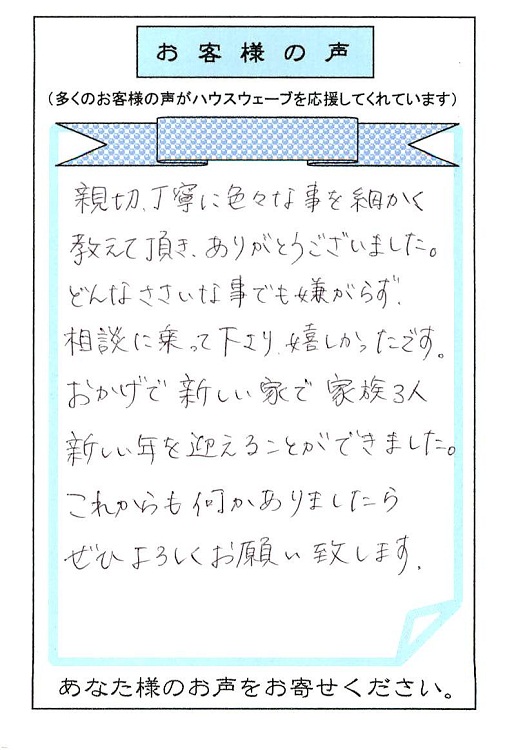 お客様の声
（多くのお客様の声がハウスウェーブを応援してくれています）
親切、丁寧に色々な事を細かく
教えて頂き、ありがとうございました。
どんなささいな事でも嫌がらず、
相談に乗って下さり、嬉しかったです。
おかげで新しい家で家族3人
新しい年を迎えることができました。
これからも何かありましたら
ぜひよろしくお願い致します。
あなた様のお声をお寄せください。